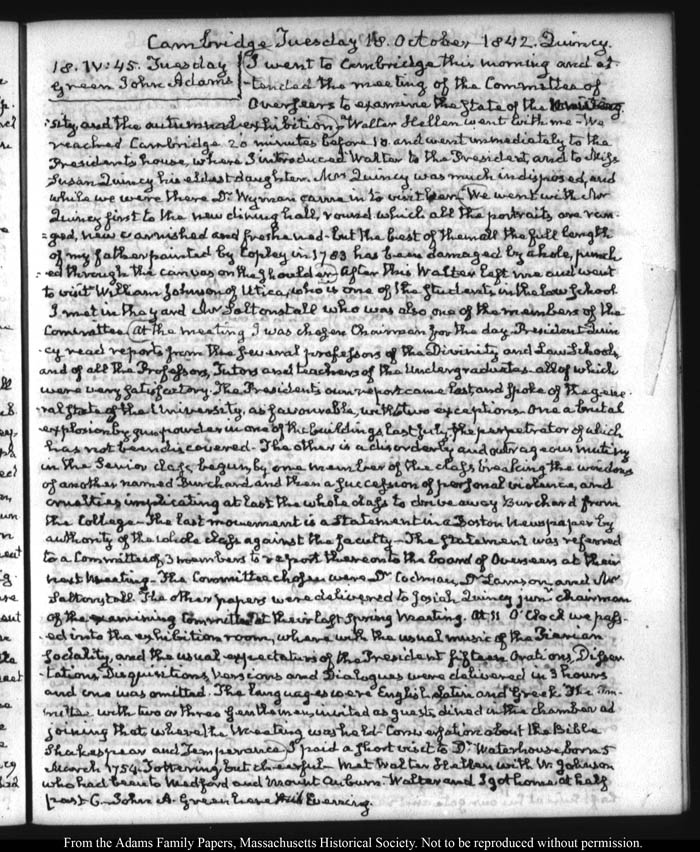 Cambridge Tuesday 18. October 1842. Quincy.
18. IV: 45. Tuesday I went to Cambridge this morning and at-
Green John Adams -tended the meeting of the Committee of
Overseers to examine the State of the Univer-
-sity, and the autumnal exhibition, Walter Hellen went with me - We
reached Cambridge 20 minutes before 10 and went immediately to the
Presidents house, where I introduced Walter to the President, and to Miss
Susan Quincy his eldest daughter. Mrs Quincy was much indisposed, and
while we were there Dr Wyman came in to visit her. We went with Mr
Quincy first to the new dining hall, round which all the portraits are ran-
=ged, new varnished and freshened - but the best of them all the full length
of my father painted by Copley in 1783 has been damaged by a hole, punch
=ed through the canvas on the shoulder. After this Walter left me and went
to visit William Johnson of Utica, who is one of the Students in the Law School
I met in the yard Mr Saltonstall who was also one of the members of the
Committee. At the meeting I was chosen Chairman for the day. President Quin-
-cy read reports from the several professors of the Divinity and Law Schools,
and of all the Professors, Tutors and teachers of the Undergraduates - all of which
were very satisfactory. The President's own report came last and spoke of the gene-
-ral state of the University, as favourable, with two exceptions. One a brutal
explosion by gun powder in one of the buildings last July, the perpetrator of which
has not been discovered. The other is a disorderly and outrageous mutiny
in the Senior class, begun by one member of the class breaking the windows
of another named Burchard and then a succession of personal violence, and
cruelties implicating at last the whole class to drive away Burchard from
the College - The last movement is a Statement in a Boston Newspaper by
authority of the whole class against the faculty - The statement was referred
to a Committee of 3 members to report thereon to the board of Overseers at their
next Meeting. The Committee chosen were Dr Codman, Dr Lamson and Mr
Saltonstall. The other papers were delivered to Josiah Quincy junr chairman
of the examining Committee at their last Spring Meeting. At 11 O'Clock we pass-
-ed into the exhibition room, where with the usual music of the Pierian
Sodality, and the usual expectation of the President fifteen Orations, Disser-
-tations Disquisitions, Versions and Dialogues were delivered in 3 hours
and one was omitted. The languages were English, Latin and Greek The Com-
mittee with two or three Gentlemen, invited as guests, dined in the chamber ad
joining that where the Meeting was held - Conversation about the Bible
Shakespear and Temperance, I paid a short visit to Dr Waterhouse, born 5
March 1754. Tottering, but cheerful - Met Walter Hellen with W. Johnson
who had been to Medford and Mount Auburn - Walter and I got home at half
past 6. John A. Green here this Evening.
From the Adams Family Papers, Massachusetts Historical Society. Not to be reproduced without permission.